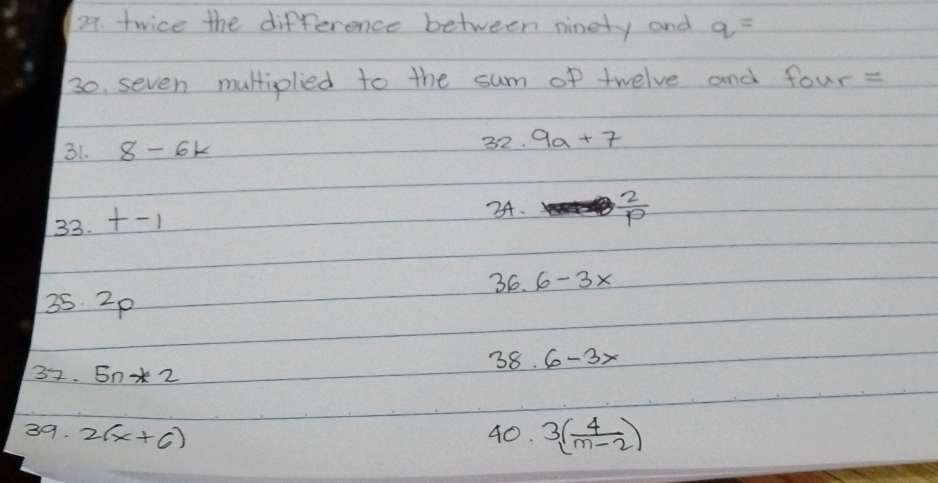 29. twice the difference between ninety and q =
30. seven multiplied to the sum of twelve and four =
31. 8 - 6k 32. 9a + 7
33. t - 1 34. 2/p
35. 2p 36. 6 - 3x
37. 5n * 2 38. 6 - 3x
39. 2(x + 6) 40. 3(4/m-2)